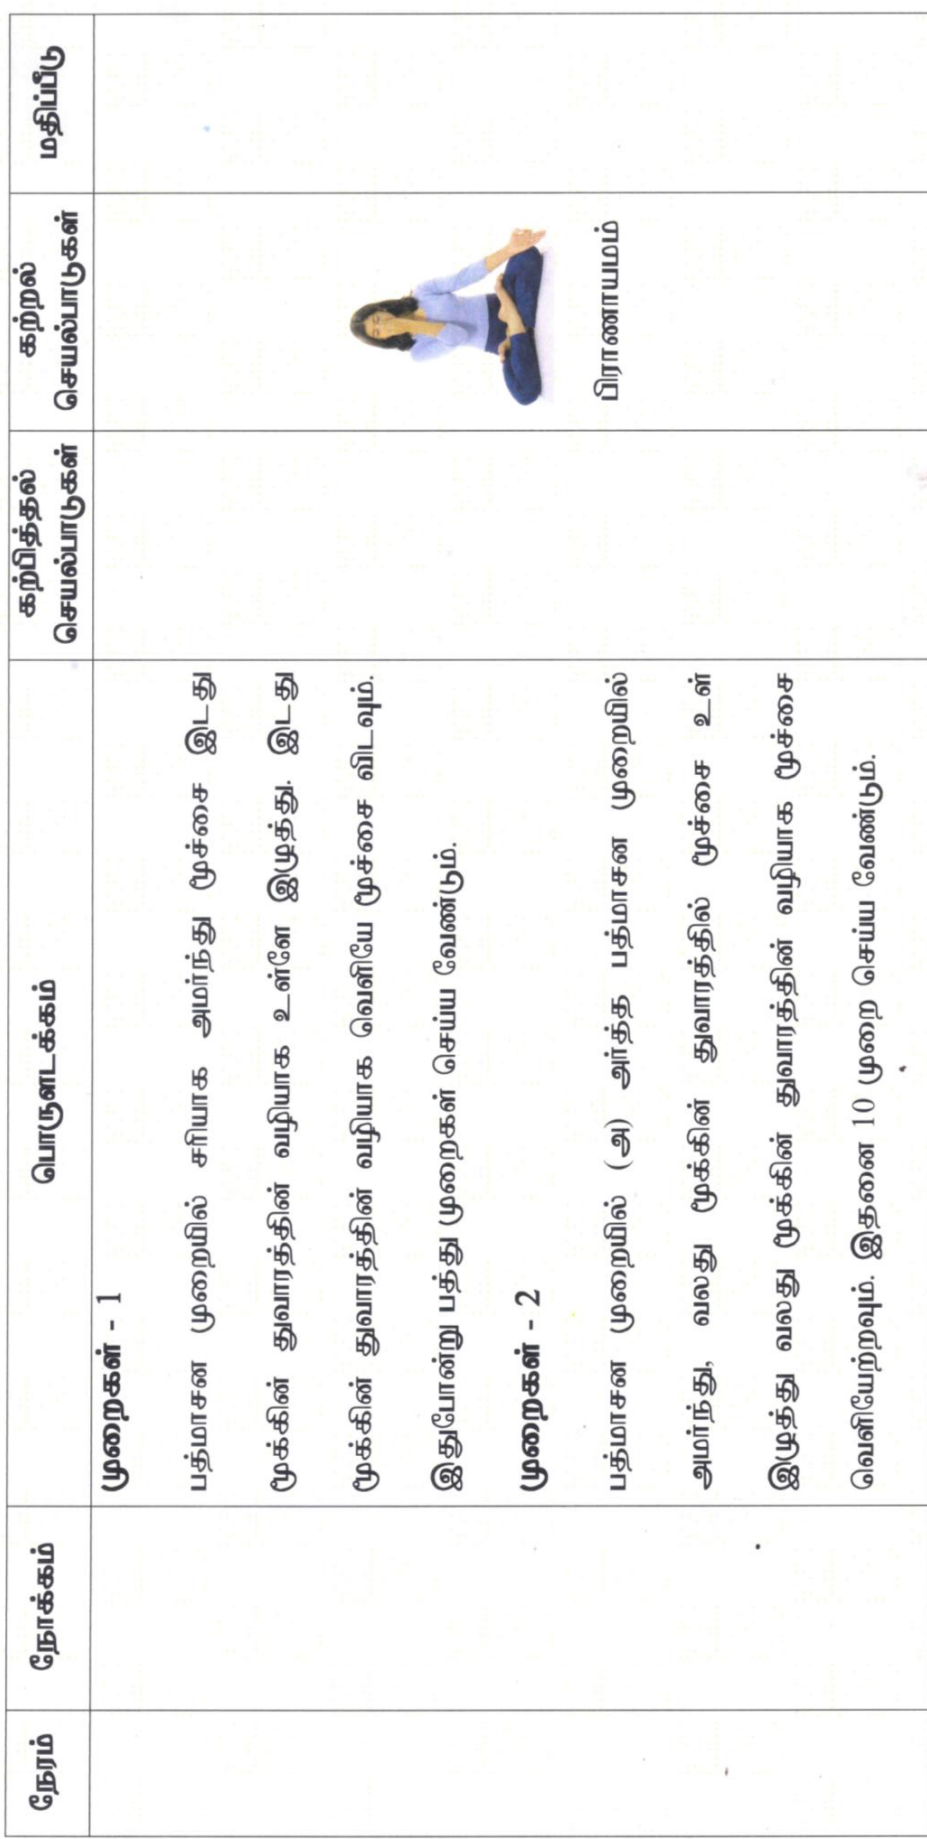 நேரம்
நோக்கம்
பொருளடக்கம்
கற்பித்தல்
செயல்பாடுகள்
கற்றல்
செயல்பாடுகள்
மதிப்பீடு
முறைகள் - 1
பத்மாசன முறையில் சரியாக அமர்ந்து மூச்சை இடது
மூக்கின் துவாரத்தின் வழியாக உள்ளே இழுத்து. இடது
மூக்கின் துவாரத்தின் வழியாக வெளியே மூச்சை விடவும்.
இதுபோன்று பத்து முறைகள் செய்ய வேண்டும்.
முறைகள் - 2
பத்மாசன முறையில் (அ) அர்த்த பத்மாசன முறையில்
அமர்ந்து, வலது மூக்கின் துவாரத்தில் மூச்சை உள்
இழுத்து வலது மூக்கின் துவாரத்தின் வழியாக மூச்சை
வெளியேற்றவும். இதனை 10 முறை செய்ய வேண்டும்.
பிராணாயமம்